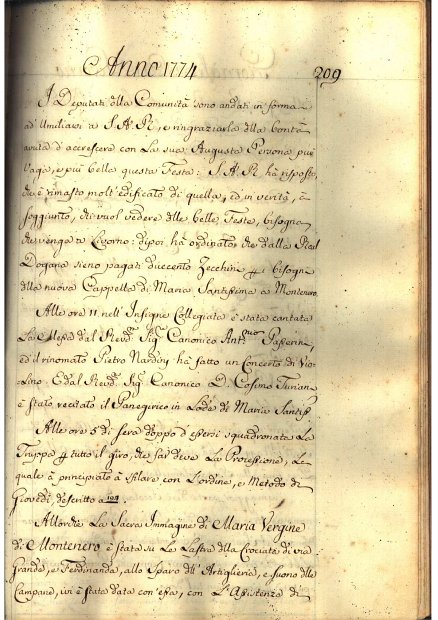 Anno 1774
209
I Deputati dlla Comunità sono andati in forma
ad' Umiliarsi a S. A. R., e ringraziarla dlla bontà
avuta d'accrescere con La sua Augusta Persona più
vaga, e più bella questa Festa: S. A. R. hà risposto,
che è rimasto molt'edificato di quella, ed in verità, à
soggiunto, chi vuol vedere dlle belle Feste, bisogna
che venga a Livorno: dipoi hà ordinato che dalla Real
Dogana sieno pagati duecento Zecchini p i bisogni
dlla nuova Cappella di Maria Santissima a Montenero.
Alle ore 11 nell' Insigne Collegiata è stata cantata
La Messa dal Revd. Sig. Canonico Ant.
ed il rinomato Pietro Nardini hà fatto un Concerto di Vio-
lino. E dal Revd. Sig. Canonico D. Cosimo
è stato recitato il Panegirico in Lode di Maria Santiss.
Alle ore 5 di sera doppo d'essersi squadronata La
Truppa p tutto il giro, che far deve La Processione, Le
quale à principiato à sfilare con L'ordine, e Metodo di
Giovedì, descritto a
Allorchè La Sacra Immagine di Maria Vergine
di Montenero è stata su Le Lastre dlla Crociata di via
Grande, e Ferdinanda, allo sparo dll' Artiglieria, e suono dlle
Campane, ivi è stata data con essa, con L'Assistenza di